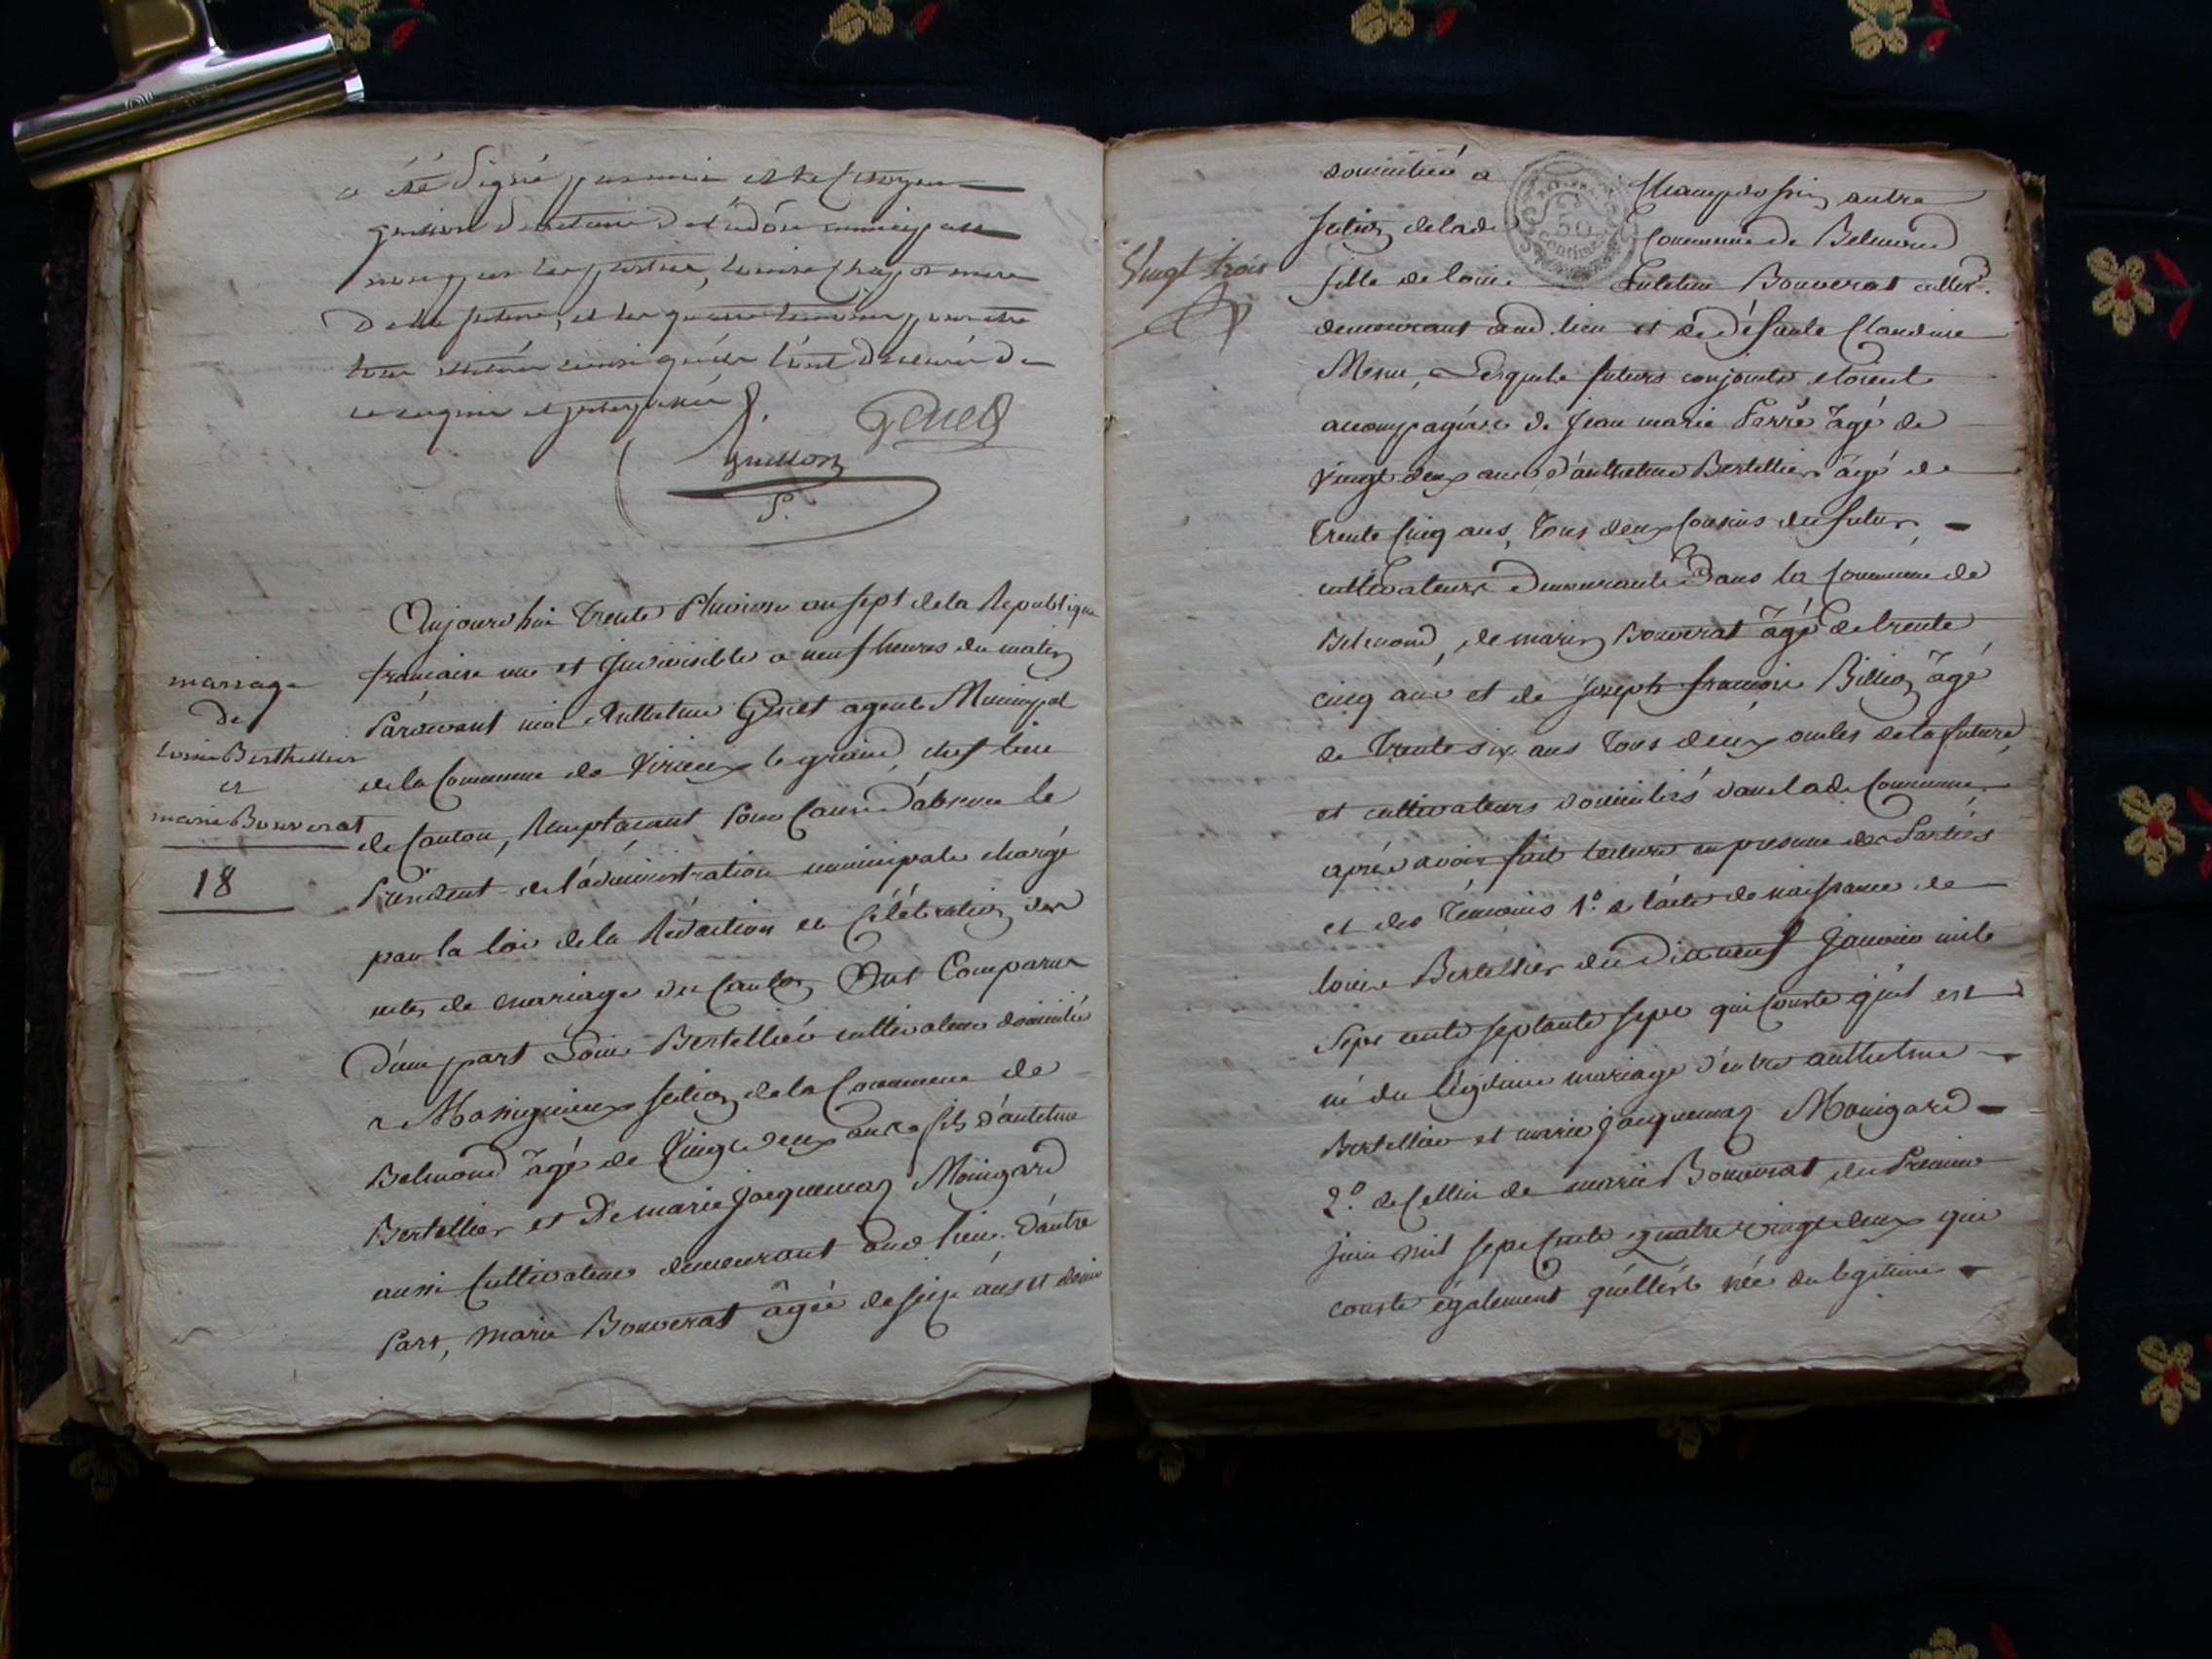 a été Signé par moi et le Citoyen
municipale
non par les parties,
de la future, et les quatre temoins pour être
de
ce enquis et interpellés
Genet
Guillon
S.
mariage
de
Louis Berthellier
et
marie Bouverat
18
Aujourdhui trente Pluviose an sept de la Republique
francaise une et Indivisible a neuf heures du matin
Pardevant moi Anthelme Genet agent Municipal
de la Commune de Virieux le grand, chef lieu
de Canton, Remplacant pour Cause d'absence le
President de l'administration municipale chargé
par la loi de la Rédaction et Célébration des
actes de mariage du Canton Ont Comparus
D'une part Louis Bertellier cultivateur domicilié
a Massignieux section de la Commune de
Belmond âgé de Vingt deux ans fils d'antelme
Bertellier et De marie Jacquemaz Moingard
aussi Cultivateurs demeurant aud lieu. D'autre
Part, Marie Bouverat âgée de seize ans et demi
Vingt trois
50
centimes
domiciliée a autre
section de lade Commune de Belmond
fille de Louis Antelme Bouverat cultr.
demeurant aud. lieu et de défunte Claudine
Lesquels futurs conjoints etoient
accompagnés de Jean marie Ferré âgé de
Vingt deux ans d'anthelme Bertellier âgé de
trente Cinq ans, tous deux Cousins du futur,
cultivateurs Demeurants Dans la Commune de
Belmond, de marin Bouverat âgé de trente
cinq ans et de Joseph francois Billion âgé
de trente six ans tous deux oncles de la future,
et cultivateurs domiciliés dans lade Commune.
après avoir fait lecture en presence des Parties
et des Témoins 1.° de l'acte de naissance de
Louis Bertellier du Dix neuf Janvier mile
Sept cents septante sept qui Conste qu'il est
né du légitime mariage d'entre anthelme
Bertellier et marie Jacquemaz Moingard
2.° de Cellui de marie Bouverat du Premier
Juin mil sept Cents quatre vingt deux qui
conste également qu'elle est née du legitime